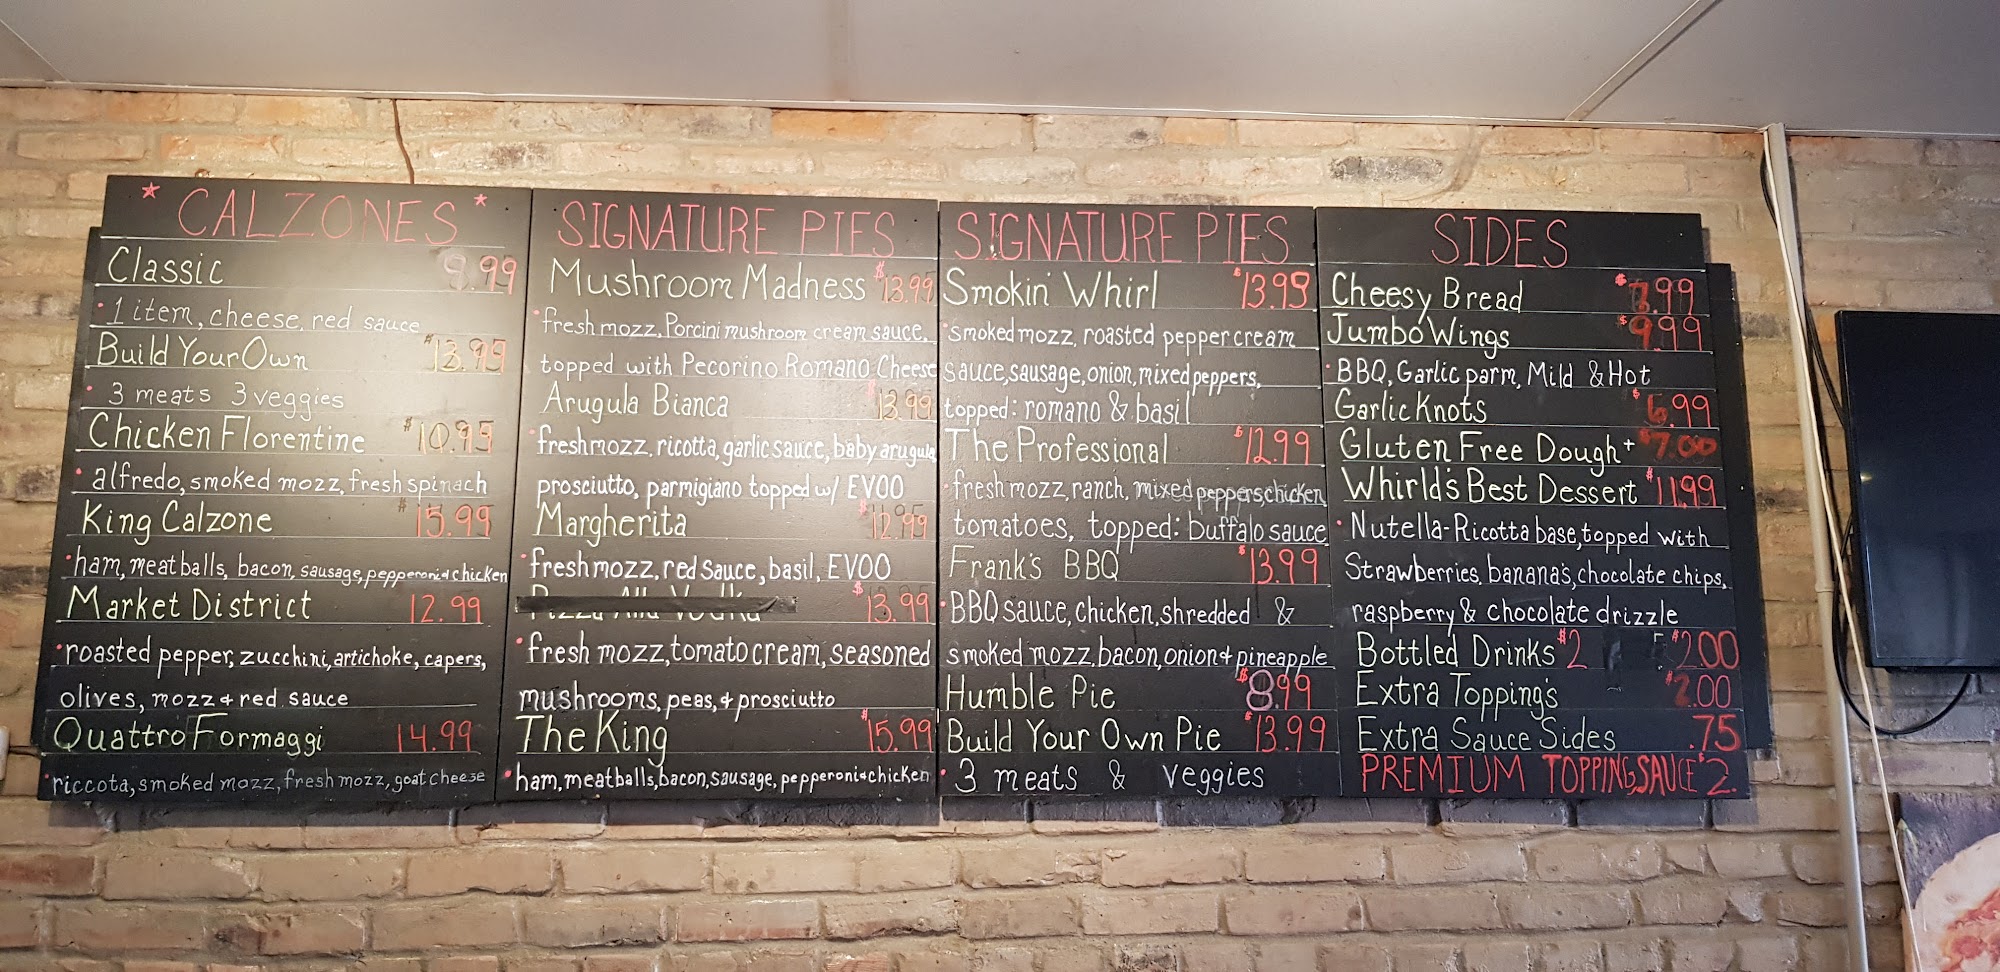 * CALZONES *
Classic 9.99
• 1 item, cheese, red sauce
Build Your Own $13.99
• 3 meats 3 veggies
Chicken Florentine $10.95
• alfredo, smoked mozz, fresh spinach
King Calzone $15.99
• ham, meatballs, bacon, sausage, pepperoni & chicken
Market District 12.99
• roasted pepper, zucchini, artichoke, capers,
olives, mozz & red sauce
Quattro Formaggi 14.99
• riccota, smoked mozz, fresh mozz, goat cheese
SIGNATURE PIES
Mushroom Madness $13.99
• fresh mozz, Porcini mushroom cream sauce,
topped with Pecorino Romano Cheese
Arugula Bianca $13.99
• fresh mozz, ricotta, garlic sauce, baby arugula
prosciutto, parmigiano topped w/ EVOO
Margherita $12.99
• fresh mozz, red sauce, basil, EVOO
Pizza Alla Vodka $13.99
• fresh mozz, tomato cream, seasoned
mushrooms, peas, & prosciutto
The King $15.99
• ham, meatballs, bacon, sausage, pepperoni & chicken
SIGNATURE PIES
Smokin' Whirl $13.99
• smoked mozz, roasted pepper cream
sauce, sausage, onion, mixed peppers,
topped: romano & basil
The Professional $12.99
• fresh mozz, ranch, mixed peppers, chicken,
tomatoes, topped: buffalo sauce
Frank's BBQ $13.99
• BBQ sauce, chicken, shredded &
smoked mozz, bacon, onion & pineapple
Humble Pie $8.99
Build Your Own Pie $13.99
• 3 meats & veggies
SIDES
Cheesy Bread $7.99
Jumbo Wings $9.99
• BBQ, Garlic parm, Mild & Hot
Garlic Knots $6.99
Gluten Free Dough + $7.00
Whirld's Best Dessert $11.99
• Nutella-Ricotta base, topped with
Strawberries, banana's, chocolate chips,
raspberry & chocolate drizzle
Bottled Drinks $2 $2.00
Extra Topping's $2.00
Extra Sauce Sides .75
PREMIUM TOPPING, SAUCE $2.